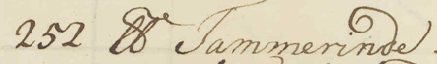 252 ℔ Tammerinde.